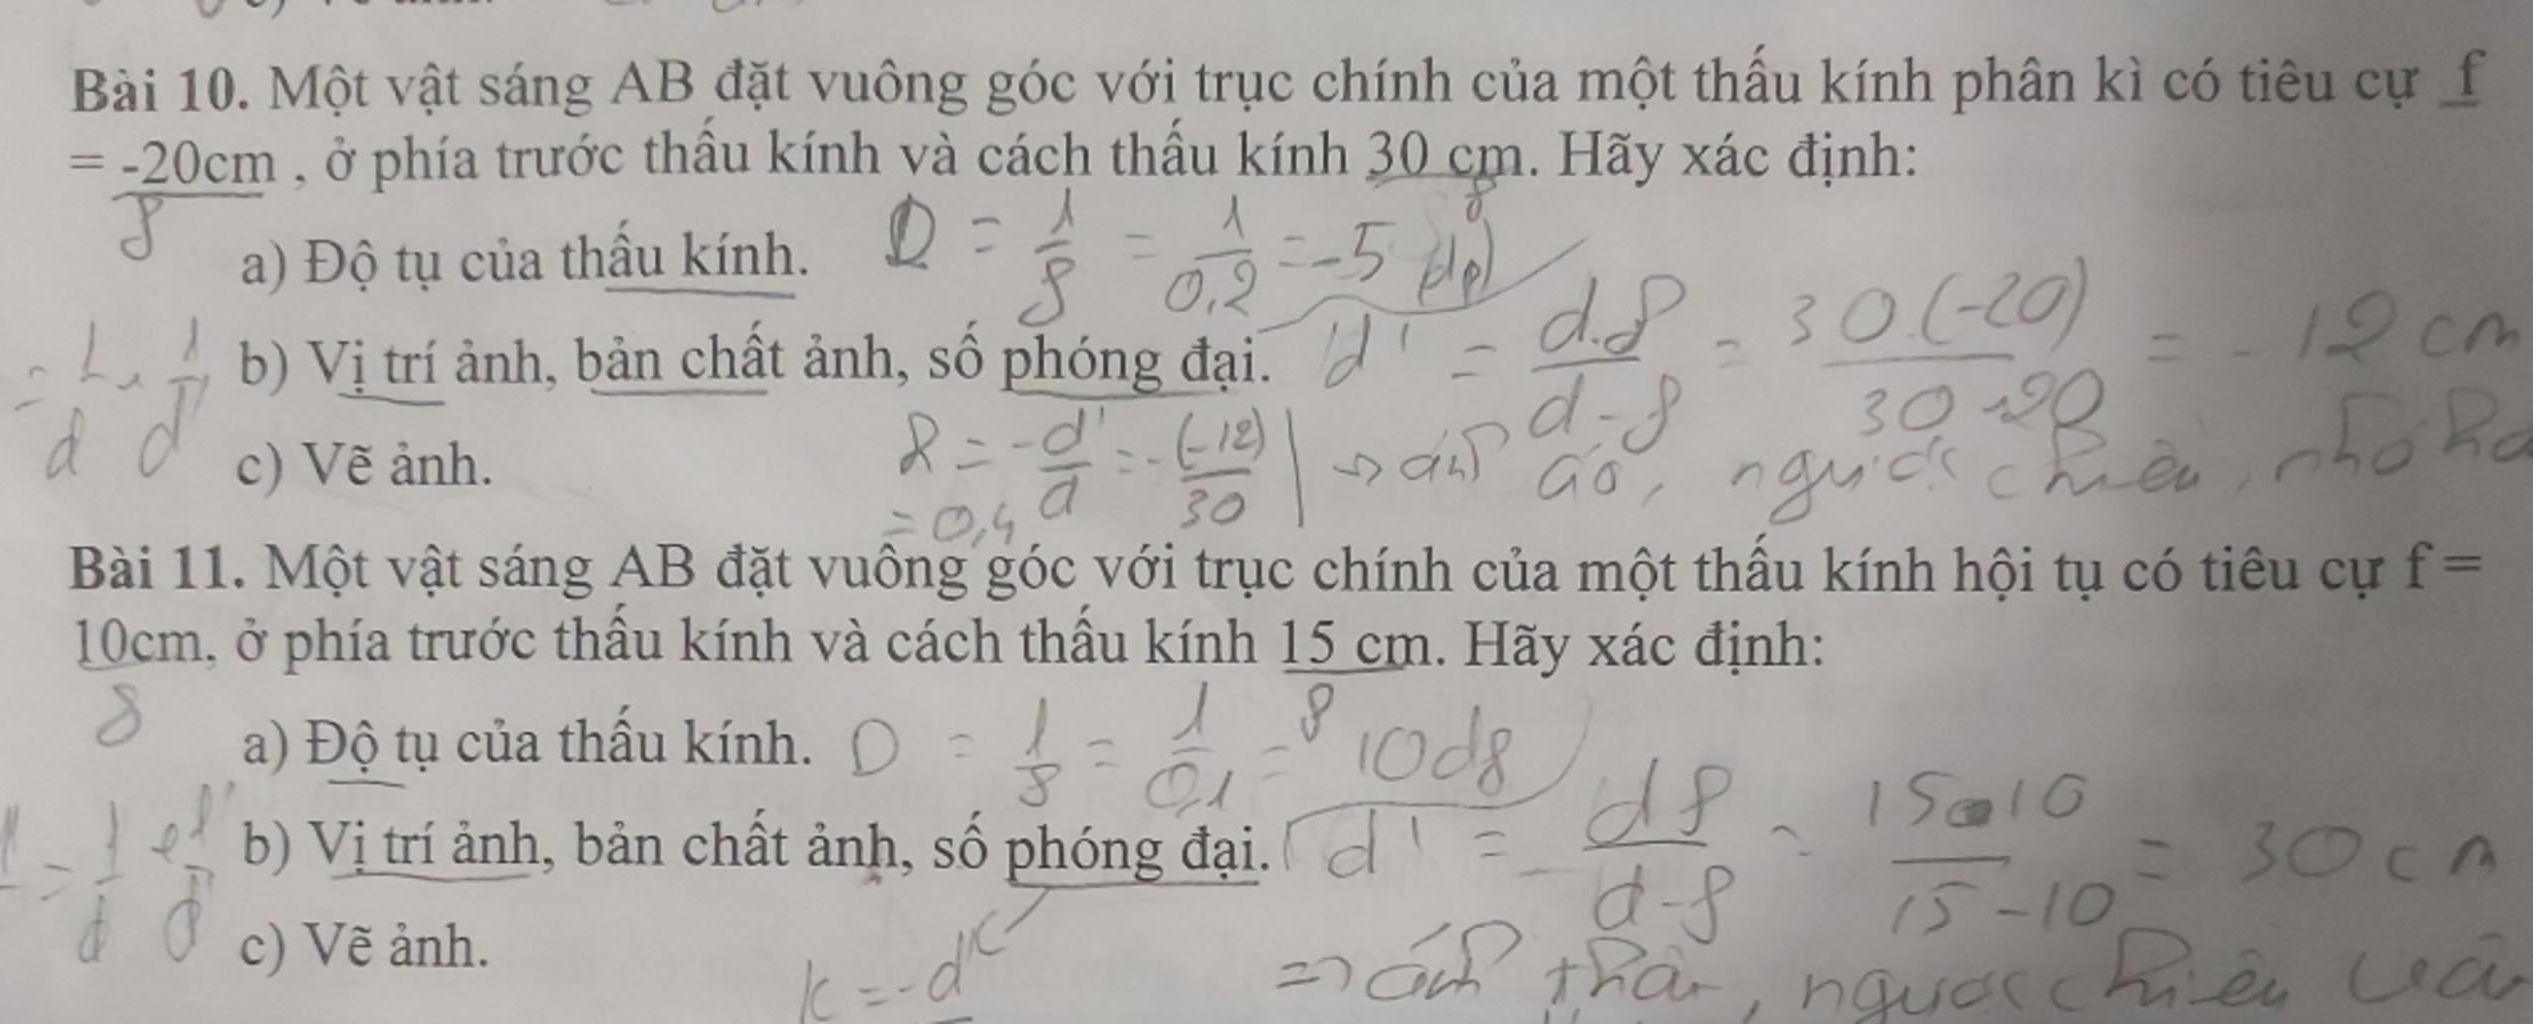 Bài 10. Một vật sáng AB đặt vuông góc với trục chính của một thấu kính phân kì có tiêu cự f
= -20cm , ở phía trước thấu kính và cách thấu kính 30 cm. Hãy xác định:
f
a) Độ tụ của thấu kính. D = 1/f = 1/0,2 = -5 (dp)
b) Vị trí ảnh, bản chất ảnh, số phóng đại. d' = d.f/d-f = 30.(-20)/30+20 = -12 cm
= 1/d + 1/d'
c) Vẽ ảnh. k = -d'/d = -(-12)/30 = 0,4 → ảnh ảo, ngược chiều, nhỏ
Bài 11. Một vật sáng AB đặt vuông góc với trục chính của một thấu kính hội tụ có tiêu cự f =
10cm, ở phía trước thấu kính và cách thấu kính 15 cm. Hãy xác định:
f
a) Độ tụ của thấu kính. D = 1/f = 1/0,1 = 10
b) Vị trí ảnh, bản chất ảnh, số phóng đại. d' = df/d-f = 15.10/15-10 = 30 cm
c) Vẽ ảnh.
k = -d
=> ảnh thật, ngược chiều